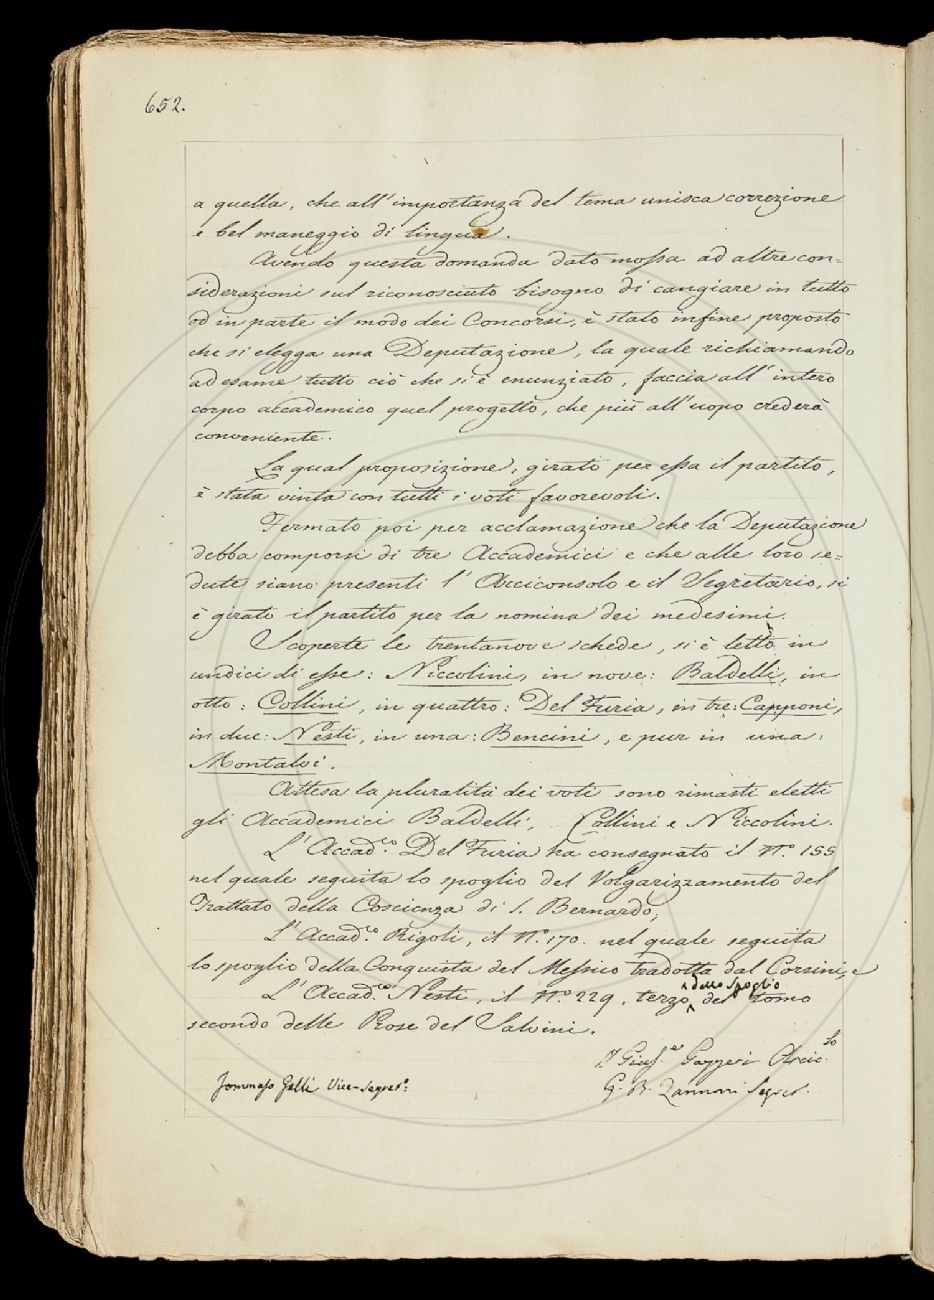 652.
a quella, che all'importanza del tema unisca correzione
e bel maneggio di lingua.
Avendo questa domanda dato mossa ad altre con=
siderazioni sul riconosciuto bisogno di cangiare in tutto
od in parte il modo dei Concorsi, è stato infine proposto
che si elegga una Deputazione, la quale richiamando
ad esame tutto ciò che si è enunziato, faccia all'intero
corpo accademico quel progetto, che più all'uopo crederà
conveniente.
La qual proposizione, girato per essa il partito,
è stata vinta con tutti i voti favorevoli.
Fermato poi per acclamazione che la Deputazione
debba comporsi di tre Accademici e che alle loro se=
dute siano presenti l'Arciconsolo e il Segretario, si
è girato il partito per la nomina dei medesimi.
Scoperte le trentanove schede, si è letto in
undici di esse: Niccolini, in nove: Baldelli, in
otto: Collini, in quattro: Del Furia, in tre: Capponi,
in due: Nesti, in una: Bencini, e pur in una:
Montalvi.
Attesa la pluralità dei voti sono rimasti eletti
gli Accademici Baldelli, Collini e Niccolini.
L'Accad.co Del Furia ha consegnato il N.o 155
nel quale seguita lo spoglio del Volgarizzamento del
Trattato della Coscienza di S. Bernardo;
L'Accad.co Rigoli, il N.o 170. nel quale seguita
lo spoglio della Conquista del Messico tradotta dal Corsini, e
L'Accad.co Nesti, il N.o 229, terzo dello spoglio del tomo
secondo delle Prose del Salvini.
Gius.e Gazzeri Arcic.lo
Tommaso Gelli Vice-Segret.o G. B. Zannoni Segret.